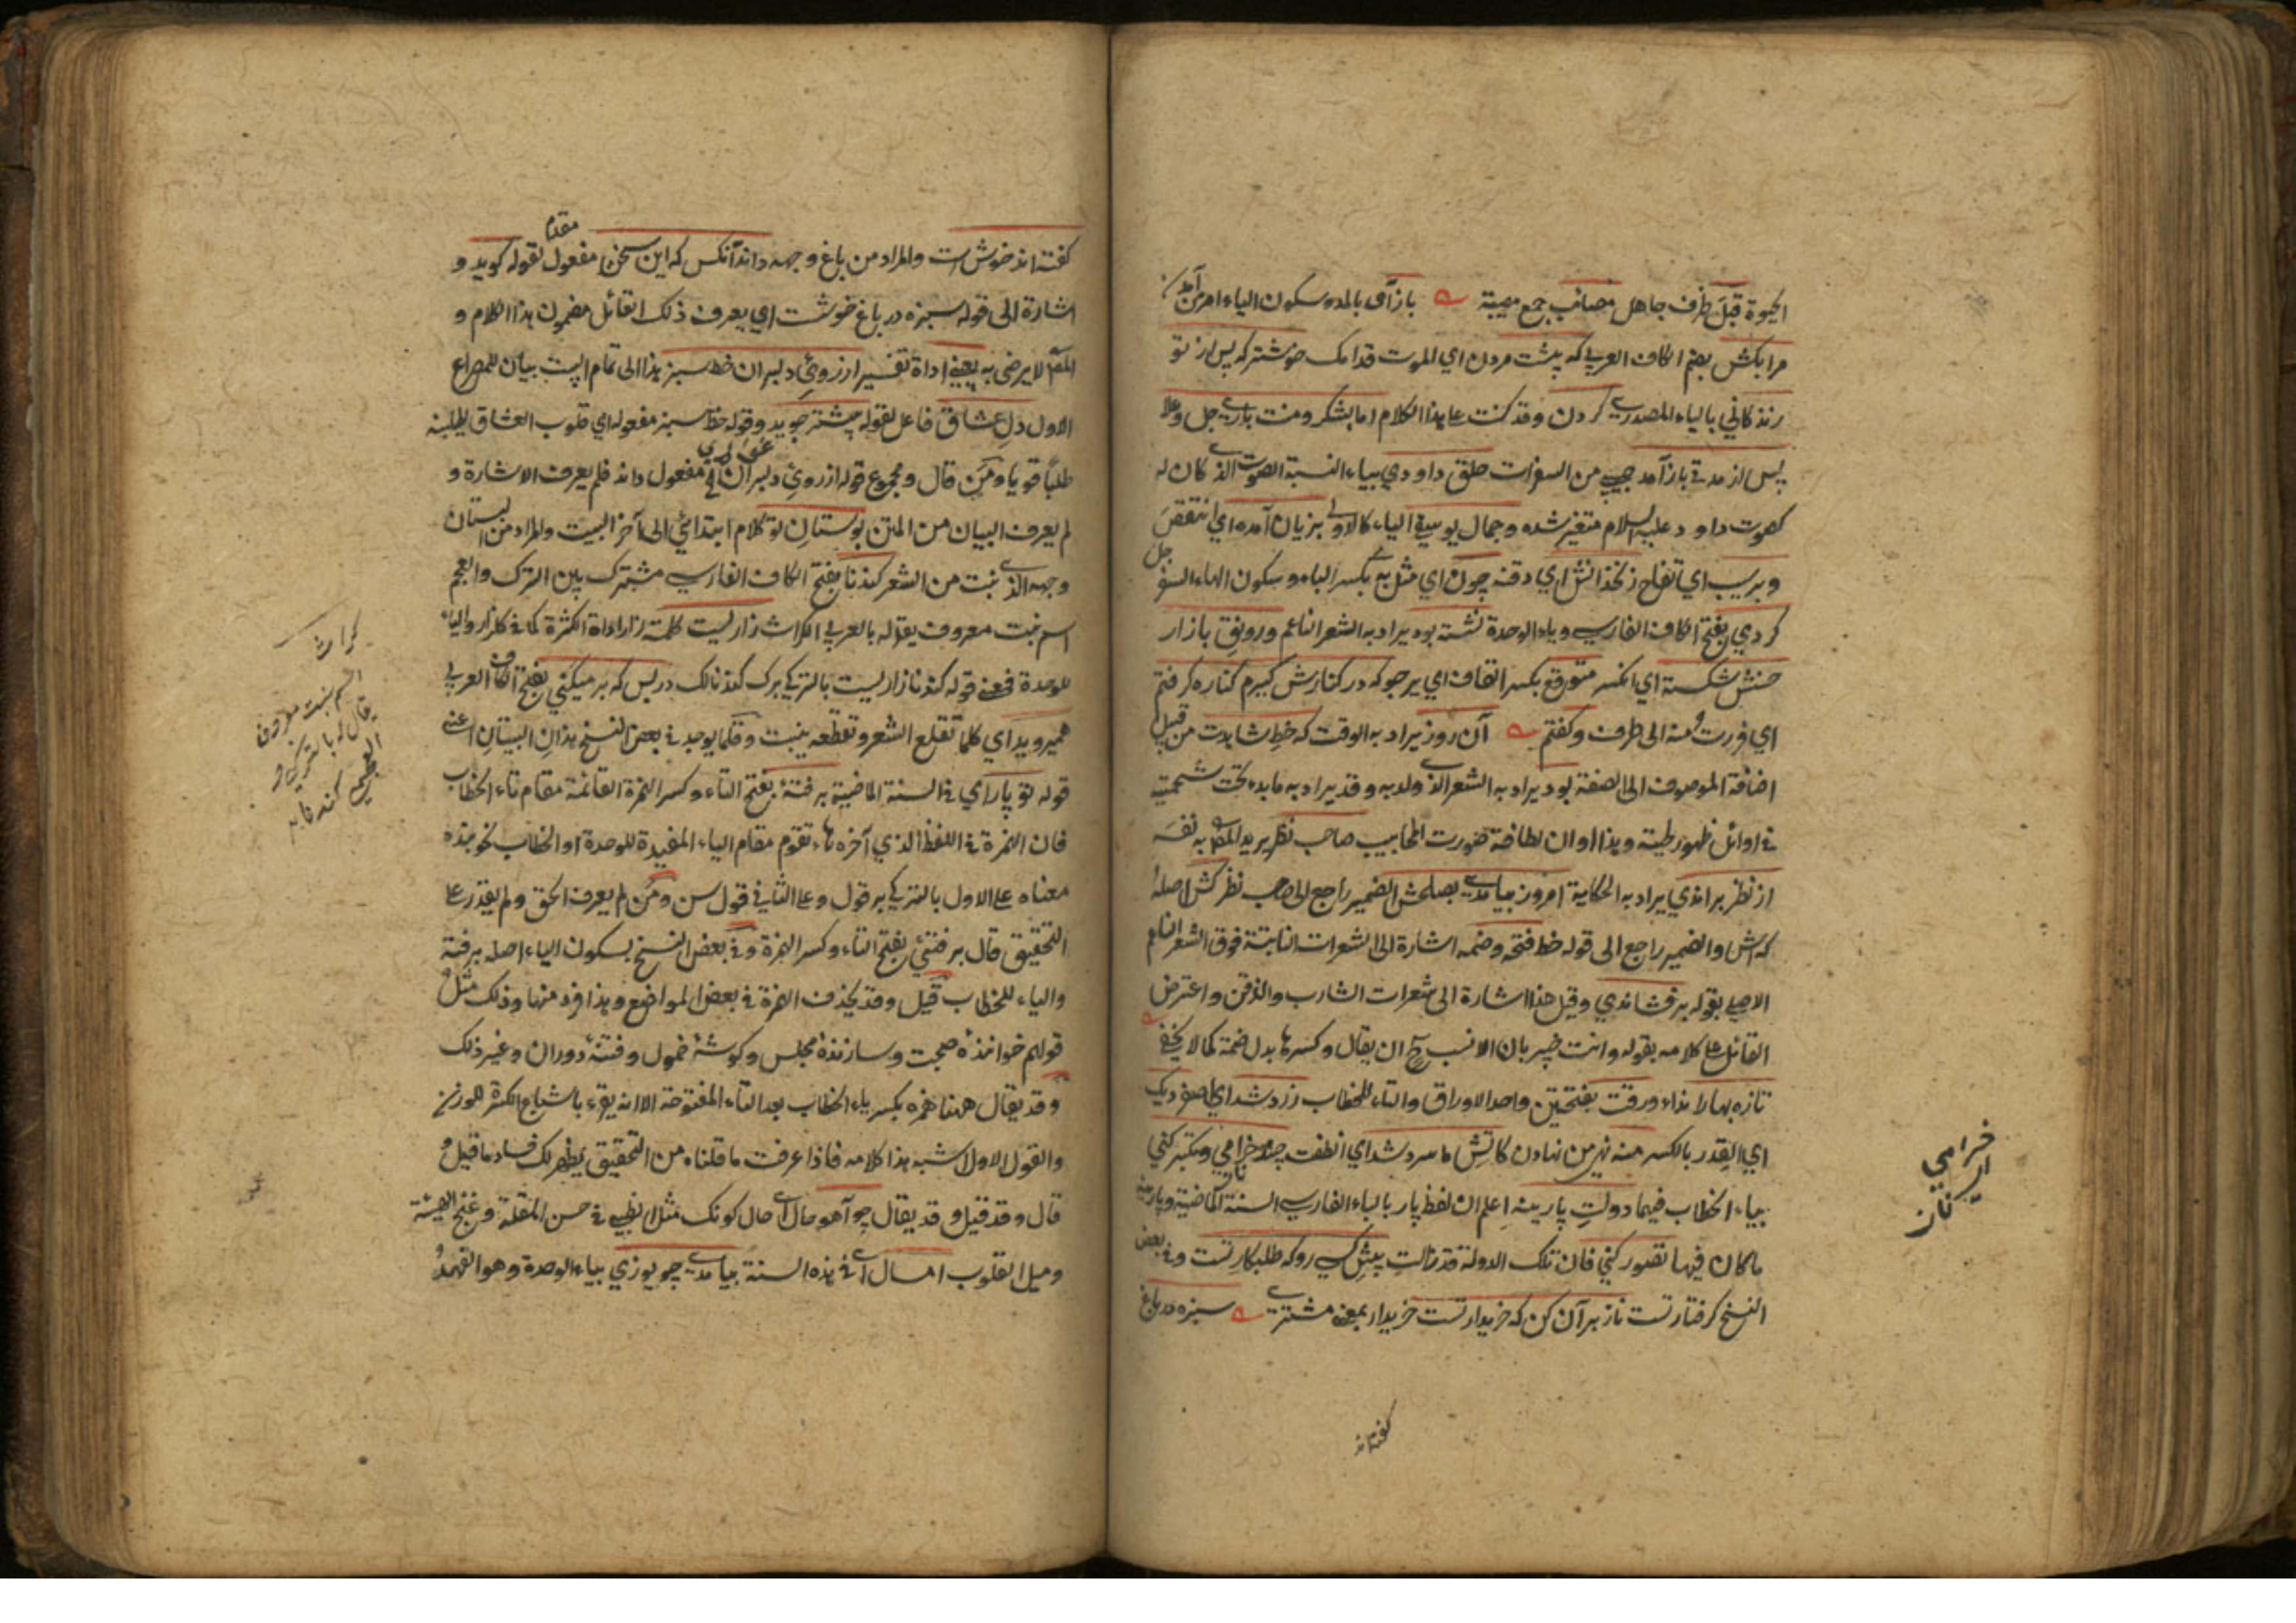 الحيوة قبل ظرف جاهل مصائب جمع مصيبة باز آمی بالمد وسكون الياء امر من آمدن
مرا بكش بضم الكاف العربي كه پيشت مردن اي الموت قدامك خوشتر كه پس از تو
زندكاني بالياء المصدري كردن وقد كنت على هذا الكلام اما بشكر ومنت باري جل وعلا
پس از مدتي باز آمد من السفر آن حلق داودي بياء النسبة الصوت الذي كان له
كصوت داود عليه السلام متغير شده وجمال يوسفي الياء كالاولى بزيان آمده اي انتقص
وبر سيب اي تفاح زنخدانش اي ذقنه چون اي مثل به بكسر الباء وسكون الهاء السفرجل
كردي بفتح الكاف الفارسي وياء الوحدة نشسته بود يراد به الشعر الناعم ورونق بازار
حسنش شكسته اي انكسر متوقع بكسر القاف اي يرجو كه در كنارش كيرم كناره كرفتم
اي فررت منه الى طرف وكفتم آن روز يراد به الوقت كه خط شاهدت من قبيل
اضافة الموصوف الى الصفة بود يراد به الشعر الذي ولد به وقد يراد به ما بدء تحت شحمتيه
في اوائل ظهور لحيته وهذا اوان لطافة صورت المحابيب صاحب نظر يريد المص به نفسه
از نظر براندي يراد به الحكاية امروز بيامدي بصلحش الضمير راجع الى صاحب نظر كش اصله
كه اش والضمير راجع الى قوله خط فتحه وضمه اشارة الى الشعرات النابتة فوق الشعر الناعم
الاصلي بقوله برفشاندي وقيل هذا اشارة الى شعرات الشارب والذقن واعترض
القائل على كلامه بقوله وانت خبير بان الانسب ح ان يقال وكسرها بدل ضمة كما لا يخفى
تازه بهارا نداء ورقت بفتحتين واحد الاوراق والتاء للخطاب زرد شد اي اصفر ديك
اي القدر بالكسر منه نهي من نهادن كاتش ما سرد شد اي انطفت چند خرامي وتكبر كني
بياء الخطاب فيهما دولت پارينه اعلم ان لفظ پار بالباء الفارسي السنة الماضية وپارينه
ما كان فيها تصور كني فان تلك الدولة قد زالت پيش كسي رو كه طلبكار تست وفي بعض
النسخ كرفتار تست ناز بر آن كن كه خريدار تست خريدار بمعنى مشتري سبزه در باغ
كفته اند
خرامي
ناز
كفته اند خوش است والمراد من باغ وجهه داند آنكس كه اين سخن مفعول مقدم لقوله كويد و
اشارة الى قوله سبزه در باغ خوشت اي يعرف ذلك القائل مضمون هذا الكلام و
المص لا يرضى به يعني اداة تفسير از روئ دلبران خط سبز هذا الى تمام البيت بيان للمصراع
الاول دل عشاق فاعل لقوله بيشتر جويد وقوله خط سبز مفعوله اي قلوب العشاق يطلبنه
طلبا قويا ومن قال ومجموع قوله از روئ دلبران مفعول داند فلم يعرف الاشارة و
لم يعرف البيان من المتن بوستان تو كلام ابتدائي الى آخر البيت والمراد من بستان
وجهه الذي نبت من الشعر كندنا بفتح الكاف الفارسي مشترك بين الترك والعجم
اسم نبت معروف يقال له بالعربي الكراث زاريست كلمة زار اداة الكثرة كما في كلزار والياء
للوحدة فمعنى قوله كندنا زاريست بالتركي برك كندنالك در بس كه بر ميكني بفتح الكاف العربي
ميرويد اي كلما تقلع الشعر وتقطعه ينبت وقلما يوجد في بعض النسخ هذان البيتان اعني
قوله تو پار اي في السنة الماضية برفتهٔ بفتح التاء وكسر الهمزة القائمة مقام تاء الخطاب
فان الهمزة في اللفظ الذي آخره هاء تقوم مقام الياء المفيدة للوحدة او الخطاب نحو بنده
معناه على الاول بالتركي بر قول وعلى الثاني قول سن ومن لم يعرف الحق ولم يقدر على
التحقيق قال برفتئ بفتح التاء وكسر الهمزة وفي بعض النسخ بسكون الياء اصله برفتة
والياء للخطاب قيل وقد يحذف الهمزة في بعض المواضع وهذا فرد منها وذلك مثل
قولهم خوانندهٔ صحبت وسازندهٔ مجلس وكوشهٔ خمول وفتنهٔ دوران وغير ذلك
وقد يقال ههنا همزه بكسر ياء الخطاب بعد التاء المفتوحة الا انه يقرء باشباع الكسرة للوزن
والقول الاول اشبه هذا كلامه فاذا عرفت ما قلناه من التحقيق يظهر لك فساد ما قيل و
قال وقد قيل وقد يقال چو آهو حال اي حال كونك مثل الظبي في حسن المقلة وغنج الهيئة
وميل القلوب امسال اي في هذه السنة بيامدي چو يوزي بياء الوحدة وهو الفهد
كراث
اسم نبت معروف
يقال له بالتركي و
العجمي كندنا